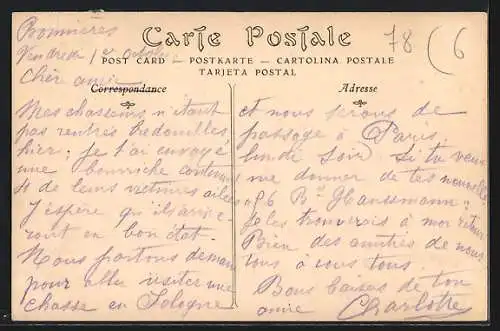 Bonnières
Vendredi 1er octobre
Chère amie
Carte Postale
78
6
POST CARD — POSTKARTE — CARTOLINA POSTALE
TARJETA POSTAL
Correspondance
Adresse
Mes chasseurs n'étant
pas rentrés bredouilles
hier, je t'ai envoyé
une bourriche contenant
de leurs victimes ailées
J'espère qu'ils arrive-
ront en bon état.
Nous partons demain
pour aller visiter une
chasse en Sologne
et nous serons de
passage à Paris
lundi soir. Si tu veux
me donner de tes nouvelles
96 Bd Haussmann
Je les trouverais à mon retour
Bien des amitiés de nous
tous à vous tous.
Bons baisers de ton
amie Charlotte